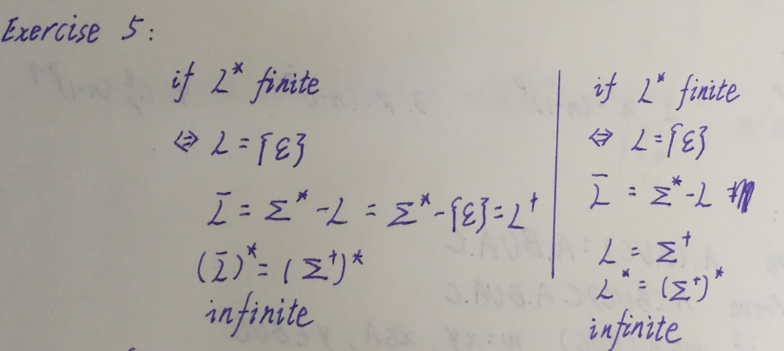 Exercise 5:
if L* finite
⇔ L = {ε}
L̅ = Σ* - L = Σ* - {ε} = L⁺
(L̅)* = (Σ⁺)*
infinite
if L* finite
⇔ L = {ε}
L̅ = Σ* - L
L = Σ⁺
L* = (Σ⁺)*
infinite